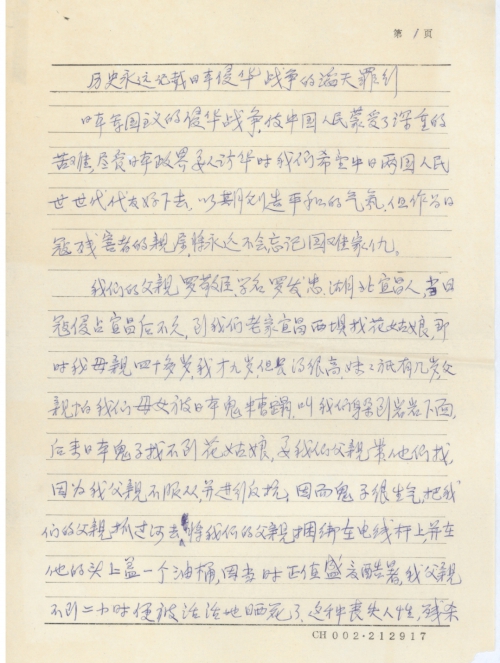 第 1 页
历史永远记载日本侵华战争的滔天罪行
日本军国主义的侵华战争,使中国人民蒙受了深重的
苦难,尽管日本政界要人访华时我们希望中日两国人民
世世代代友好下去,以期创造平和的气氛,但作为日
寇残害者的亲属,将永远不会忘记国难家仇。
我们的父亲罗敬臣,学名罗发忠,湖北宜昌人,当日
寇侵占宜昌后不久,到我们老家宜昌西坝找花姑娘,那
时我母亲四十多岁,我才九岁,但长得很高,妹妹祇有几岁,父
亲怕我们母女被日本鬼糟蹋,叫我们躲到岩岩下面,
后来日本鬼子找不到花姑娘,要我们父亲带他们找,
因为我父亲不服从,并进行反抗,因而鬼子很生气,把我
们的父亲抓过河去,将我们的父亲捆绑在电线杆上,并在
他的头上盖一个油桶,因当时正值盛夏酷暑,我父亲
不到二小时便被活活地晒死了,这种丧失人性,残杀
CH 002·212917